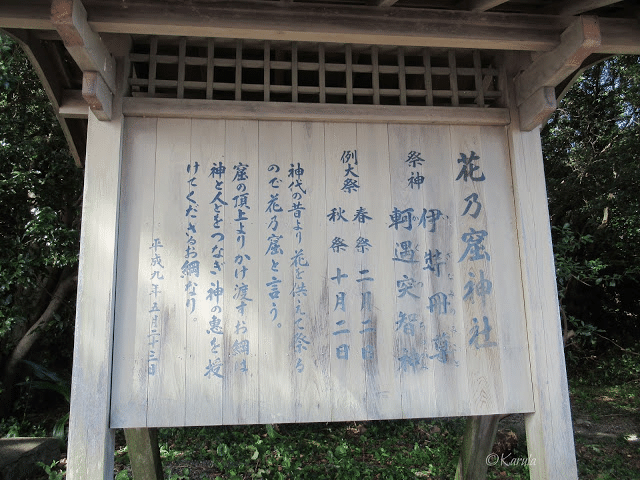 花乃窟神社
祭神 伊弉冊尊
軻遇突智神
例大祭 春祭 二月二日
秋祭 十月二日
神代の昔より花を供えて祭る
ので花乃窟と言う。
窟の頂上よりかけ渡すお綱は
神と人をつなぎ神の恵を授
けてくださるお綱なり。
平成九年五月二十三日
©Karula